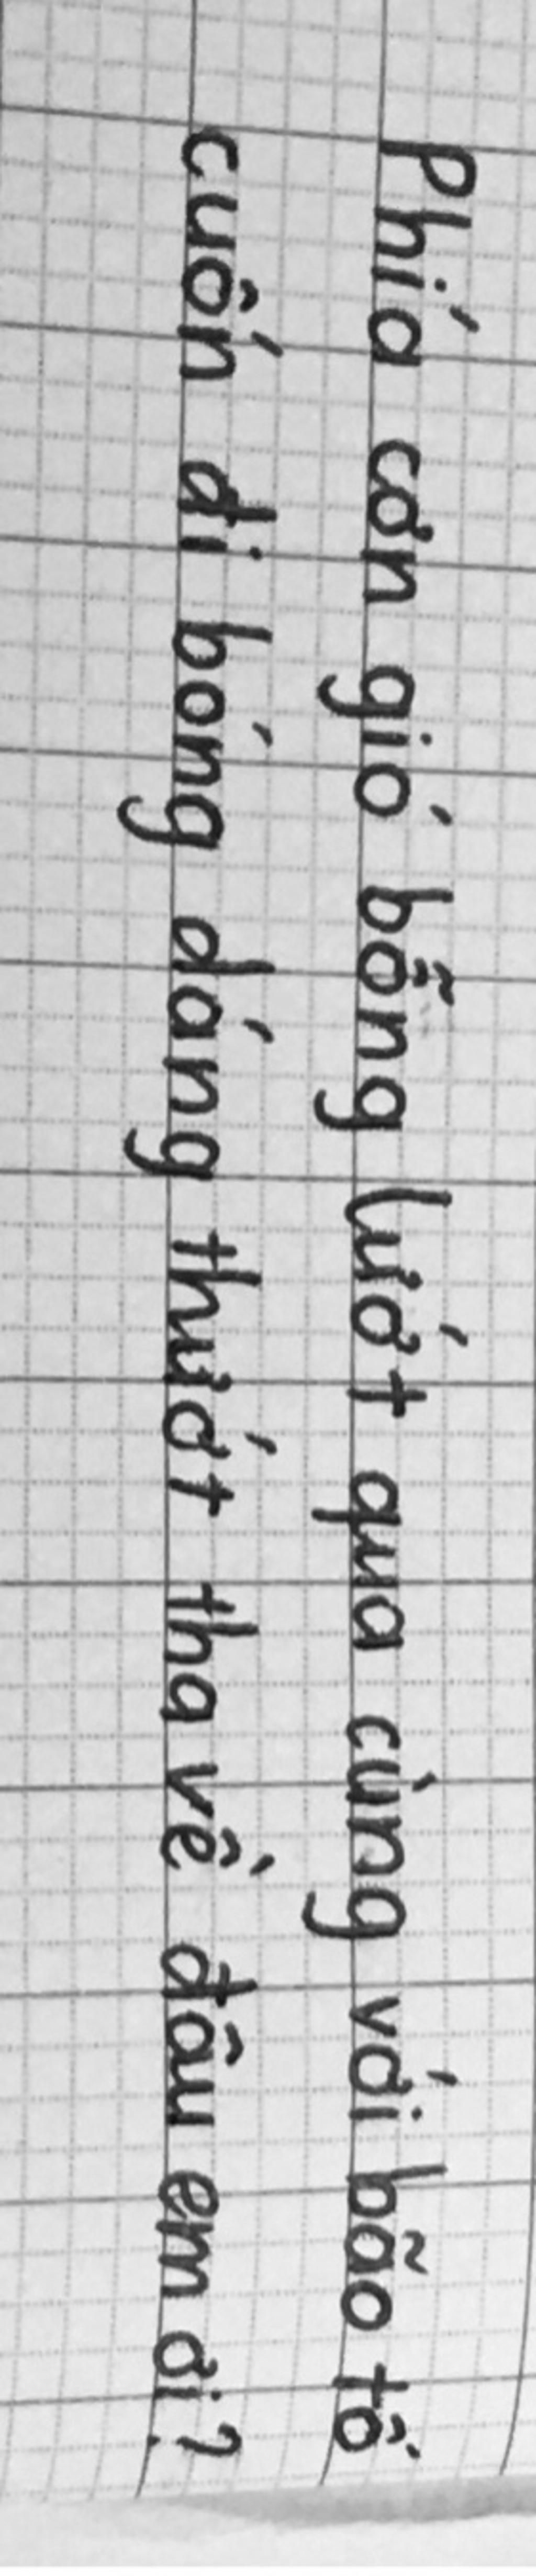 Phía cơn gió bỗng lướt qua cùng với bão tố
cuốn đi bóng dáng thướt tha về đâu em ơi?